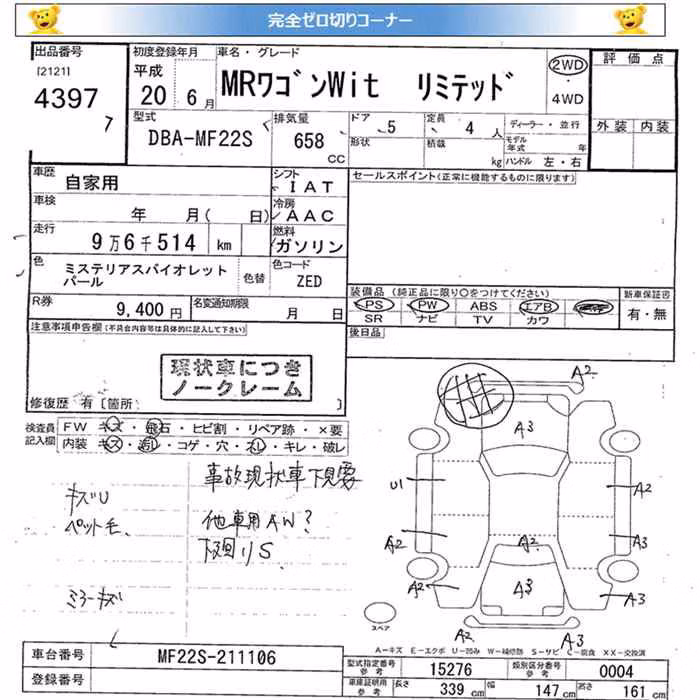 完全ゼロ切りコーナー
出品番号
[2121]
4397
7
初度登録年月
平成
20 6月
車名・グレード
MRワゴンWit リミテッド
2WD
・
4WD
評価点
外装 内装
型式
DBA-MF22S
排気量
658
CC
ドア 5
定員 4 人
形状
積載
kg
ディーラー・並行
モデル年式 年
ハンドル 左・右
車歴 自家用
シフト IAT
セールスポイント(正常に機能するものに限ります)
車検 年 月( 日)
冷房 AAC
走行 9万6千514 km
燃料 ガソリン
色 ミステリアスバイオレット
パール
色替
色コード ZED
R券 9,400円
名変通知期限 月 日
装備品(純正品に限り○をつけてください)
PS PW ABS エアB
SR ナビ TV カワ
新車保証書
有・無
後日品
注意事項申告欄(不具合内容等は具体的に記入して下さい)
現状車につき
ノークレーム
修復歴 有[箇所 ]
検査員
記入欄
FW キズ・飛石・ヒビ割・リペア跡・×要
内装 キズ・汚レ・コゲ・穴・スレ・キレ・破レ
事故現状車下見要
キズU
ペット毛、
他車用AW?
下回りS
ミラーキズ
A2
A3
U1
A2
A2
A2
A3
A2
A3
A3
A2
A3
スペア
A-キズ E-エクボ U-凹み W-補修跡 S-サビ C-腐食 XX-交換済
車台番号 MF22S-211106
登録番号
型式指定番号
参考
15276
類別区分番号
参考
0004
車庫証明用
参考
長さ 339 cm
幅 147 cm
高さ 161 cm